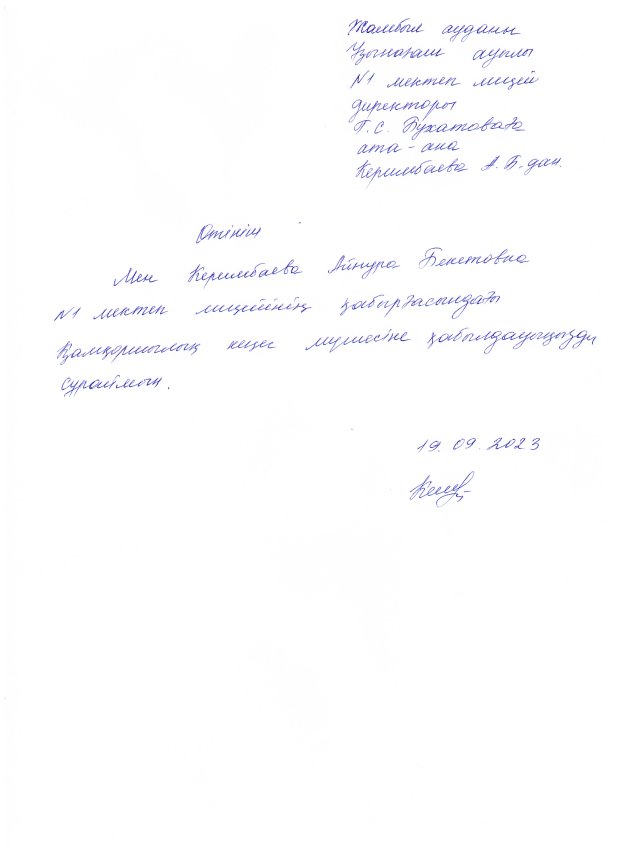 Жамбыл ауданы
Ұзынағаш ауылы
№1 мектеп лицей
директоры
Г.С. Бухатоваға
ата-ана
Керимбаева А.Б-дан.
Өтініш
Мен Керимбаева Айнура Бекетовна
№1 мектеп лицейінің қабырғасындағы
Қамқоршылық кеңес мүшесіне қабылдауыңызды
сұраймын.
19.09.2023